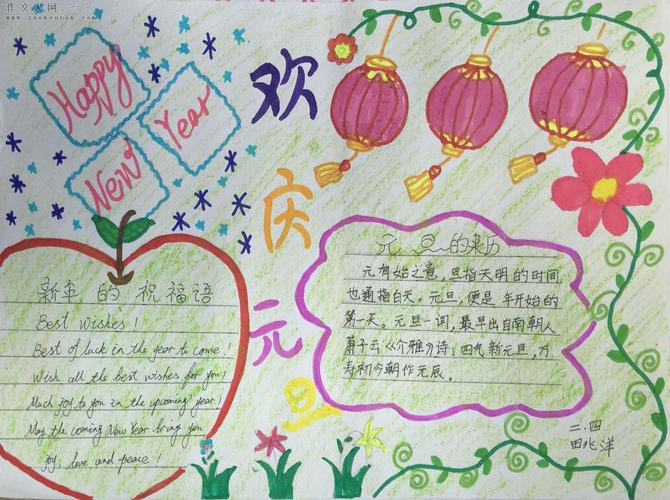 作文人网
www.zuowenren.com
Happy
New
Year
欢
庆
元
旦
新年的祝福语
Best Wishes!
Best of luck in the year to come!
Wish all the best wishes for you!
Much joy to you in the upcoming year!
May the coming New Year bring you
joy, love and peace!
元旦的来历
元有始之意,旦指天明的时间
也通指白天。元旦,便是年开始的
第一天。元旦一词,最早出自南朝人
萧子云《介雅》诗:四气新元旦,万
寿初今朝作元辰。
二.四
田兆洋